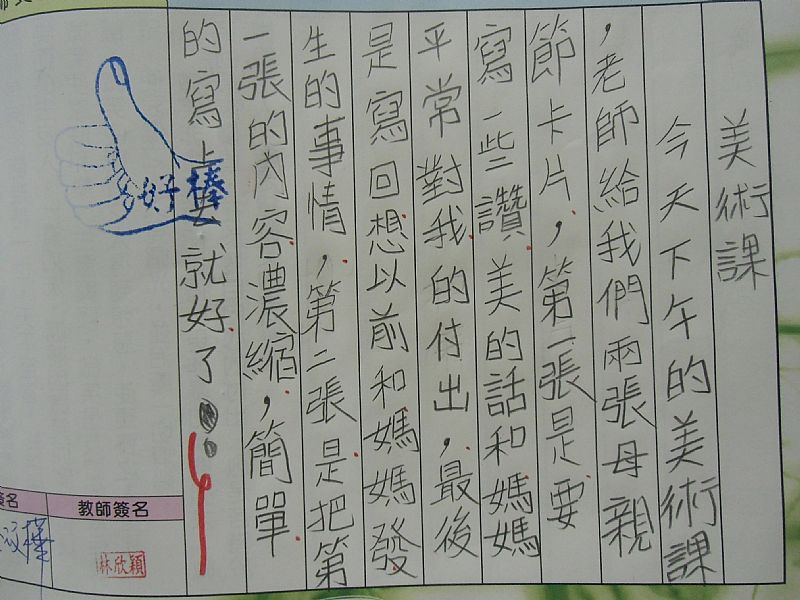 美術課
今天下午的美術課
，老師給我們兩張母親
節卡片，第一張是要
寫一些讚美的話和媽媽
平常對我的付出，最後
是寫回想以前和媽媽發
生的事情，第二張是把第
一張的內容濃縮，簡單
的寫上去就好了。
好棒
教師簽名
簽名
林欣穎